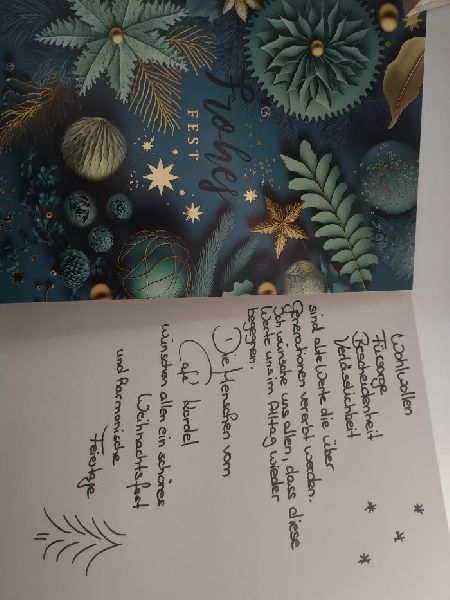 Frohes
FEST
Wohlwollen
Fürsorge
Bescheidenheit
Verlässlichkeit
sind alte Werte die über
Generationen vererbt werden.
Ich wünsche uns allen, dass diese
Werte uns im Alltag wieder
begegnen.
Die Menschen vom
Café Nordel
wünschen allen ein schönes
Weihnachtsfest
und harmonische
Feiertage